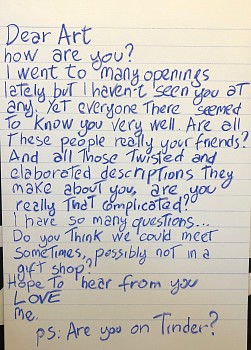 Dear Art
how are you?
I went to many openings
lately but I haven't seen you at
any. Yet everyone there seemed
to know you very well. Are all
these people really your friends?
And all those twisted and
elaborated descriptions they
make about you, are you
really that complicated?
I have so many questions...
Do you think we could meet
sometimes, possibly not in a
gift shop?
Hope to hear from you
LOVE
Me.
ps: Are you on Tinder?